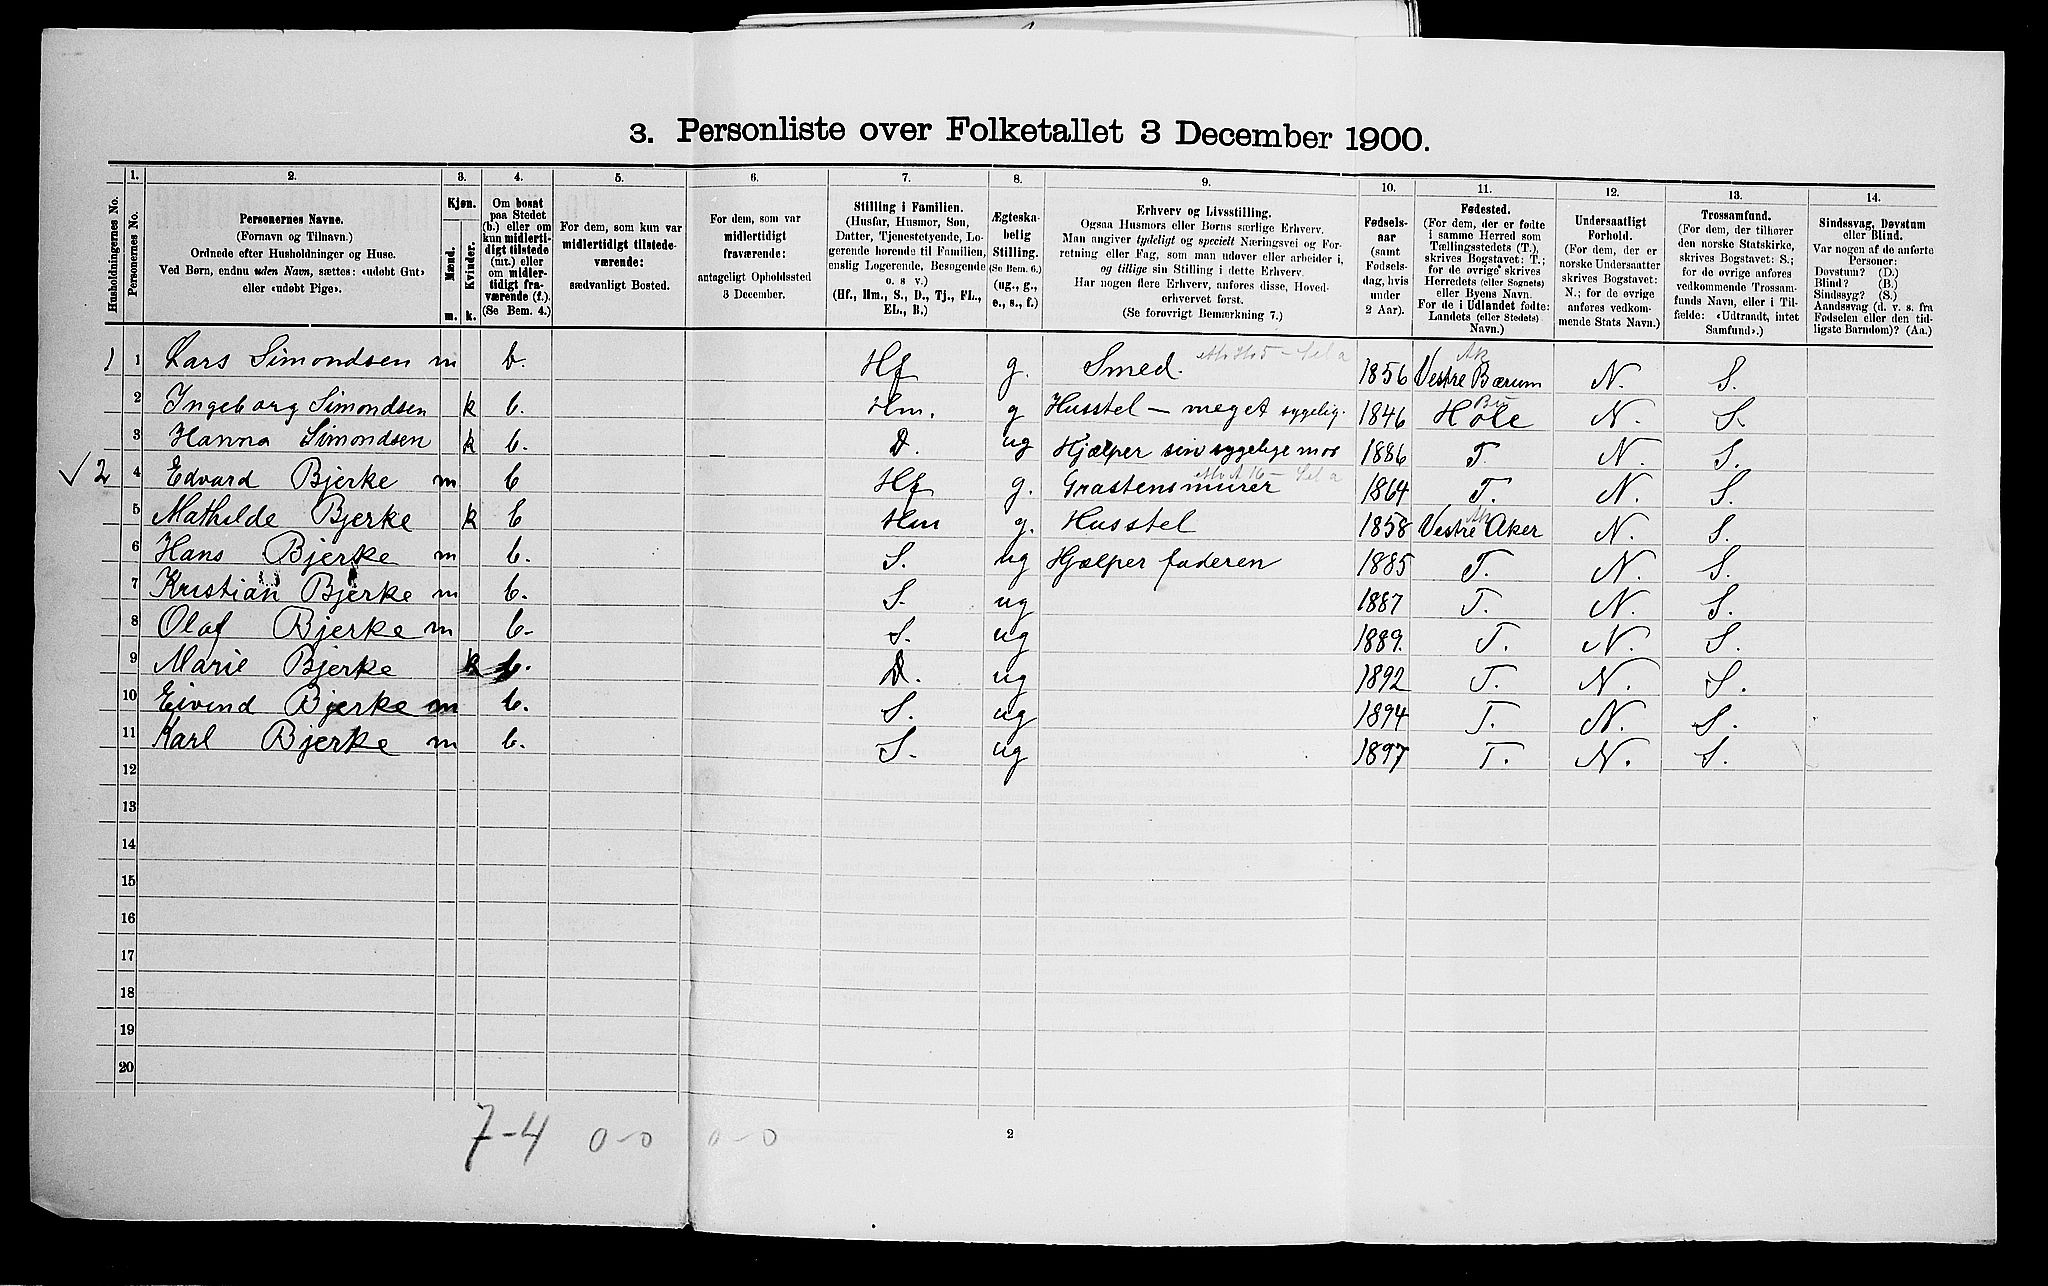 3. Personliste over Folketallet 3 December 1900.
Husholdningernes No.
1.
Personernes No.
2.
Personernes Navne.
(Fornavn og Tilnavn.)
Ordnede efter Husholdninger og Huse.
Ved Børn, endnu uden Navn, sættes: «udøbt Gut»
eller «udøbt Pige».
3.
Kjøn.
Mænd.
Kvinder.
m. k.
4.
Om bosat
paa Stedet
(b.) eller om
kun midlerti-
digt tilstede
(mt.) eller
om midler-
tidigt fra-
værende (f.).
(Se Bem. 4.)
5.
For dem, som kun var
midlertidigt tilstede-
værende:
sædvanligt Bosted.
6.
For dem, som var
midlertidigt
fraværende:
antageligt Opholdssted
3 December.
7.
Stilling i Familien.
(Husfar, Husmor, Søn,
Datter, Tjenestetyende, Lo-
gerende hørende til Familien,
enslig Logerende, Besøgende
o. s v.)
(Hf., Hm., S., D., Tj., FL.,
EL., B.)
8.
Ægteska-
belig
Stilling.
(Se Bem. 6.)
(ug., g.,
e., s., f.)
9.
Erhverv og Livsstilling.
Ogsaa Husmors eller Børns særlige Erhverv.
Man angiver tydeligt og specielt Næringsvei og For-
retning eller Fag, som man udøver eller arbeider i,
og tillige sin Stilling i dette Erhverv.
Har nogen flere Erhverv, anføres disse, Hoved-
erhvervet først.
(Se forøvrigt Bemærkning 7.)
10.
Fødsels-
aar
(samt
Fødsels-
dag, hvis
under
2 Aar).
11.
Fødested.
(For dem, der er fødte
i samme Herred som
Tællingsstedets (T.),
skrives Bogstavet: T.;
for de øvrige skrives
Herredets (eller Sognets)
eller Byens Navn.
For de i Udlandet fødte:
Landets (eller Stedets)
Navn.)
12.
Undersaatligt
Forhold.
(For dem, der er
norske Undersaatter
skrives Bogstavet:
N.; for de øvrige
anføres vedkom-
mende Stats Navn.)
13.
Trossamfund.
(For dem, der tilhører
den norske Statskirke,
skrives Bogstavet: S.;
for de øvrige anføres
vedkommende Trossam-
funds Navn, eller i Til-
fælde: «Udtraadt, intet
Samfund».)
14.
Sindssvag, Døvstum
eller Blind.
Var nogen af de anførte
Personer:
Døvstum? (D.)
Blind? (B.)
Sindssyg? (S.)
Aandssvag (d. v. s. fra
Fødselen eller den tid-
ligste Barndom)? (Aa.)
1 1 Lars Simondsen m b. Hf g. Smed. 1856 Vestre Bærum Ak N. S.
2 Ingeborg Simondsen k b. Hm. g Husstel – meget sygelig. 1846 Hole Bu N. S.
3 Hanna Simondsen k b. D. ug Hjælper sin sygelige mor 1886 T. N. S.
√ 2 4 Edvard Bjerke m b Hf g. Graastensmurer 1864 T. N. S.
5 Mathilde Bjerke k b Hm g. Husstel 1858 Vestre Aker Ak N. S.
6 Hans Bjerke m b. S. ug Hjælper faderen 1885 T. N. S.
7 Kristian Bjerke m b. S. ug 1887 T. N. S.
8 Olaf Bjerke m b. S. ug 1889. T. N. S.
9 Marie Bjerke k b. D. ug 1892 T. N. S.
10 Eivind Bjerke m b. S. ug 1894 T. N. S.
11 Karl Bjerke m b. S. ug 1897 T. N. S.
12
13
14
15
16
17
18
19
20
7-4 0-0 0-0
2